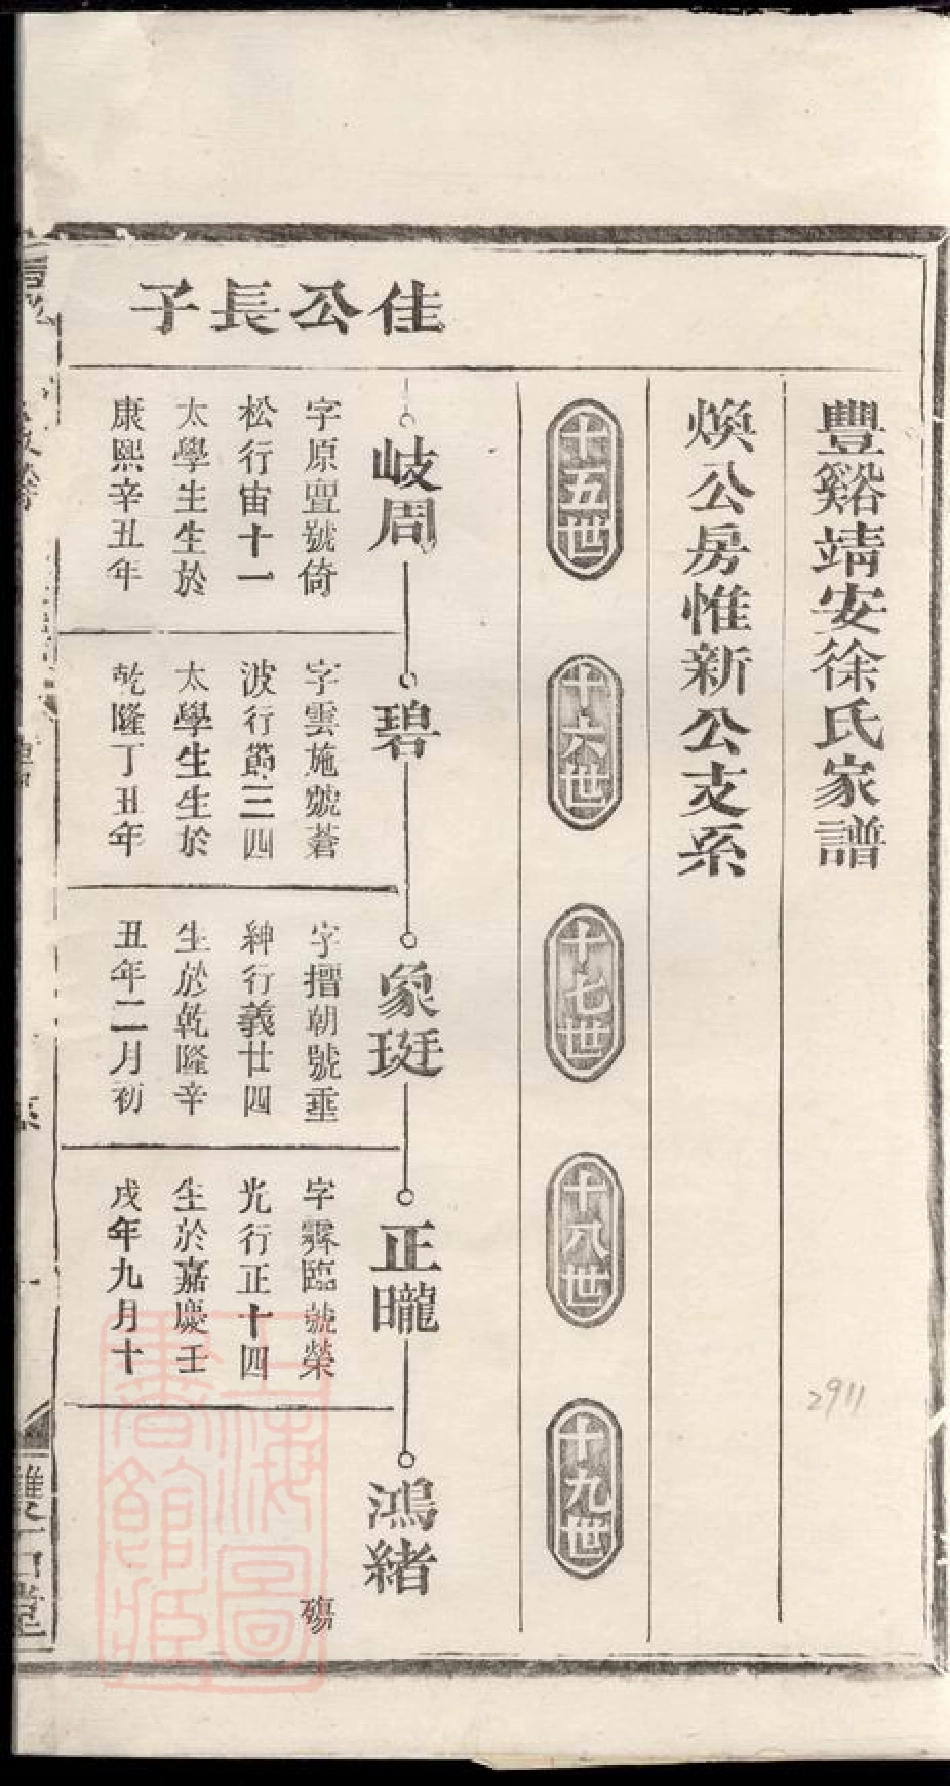 豐谿靖安徐氏家譜
煥公房惟新公支系
十五世
十六世
十七世
十八世
十九世
佳公長子
岐周
字原亶號倚
松行宙十一
太學生生於
康熙辛丑年
碧
字雲施號蒼
波行節三四
太學生生於
乾隆丁丑年
象珽
字搢朝號垂
紳行義廿四
生於乾隆辛
丑年二月初
正曨
字驛臨號榮
光行正十四
生於嘉慶壬
戌年九月十
鴻緒
殤
2911
上海圖書館藏